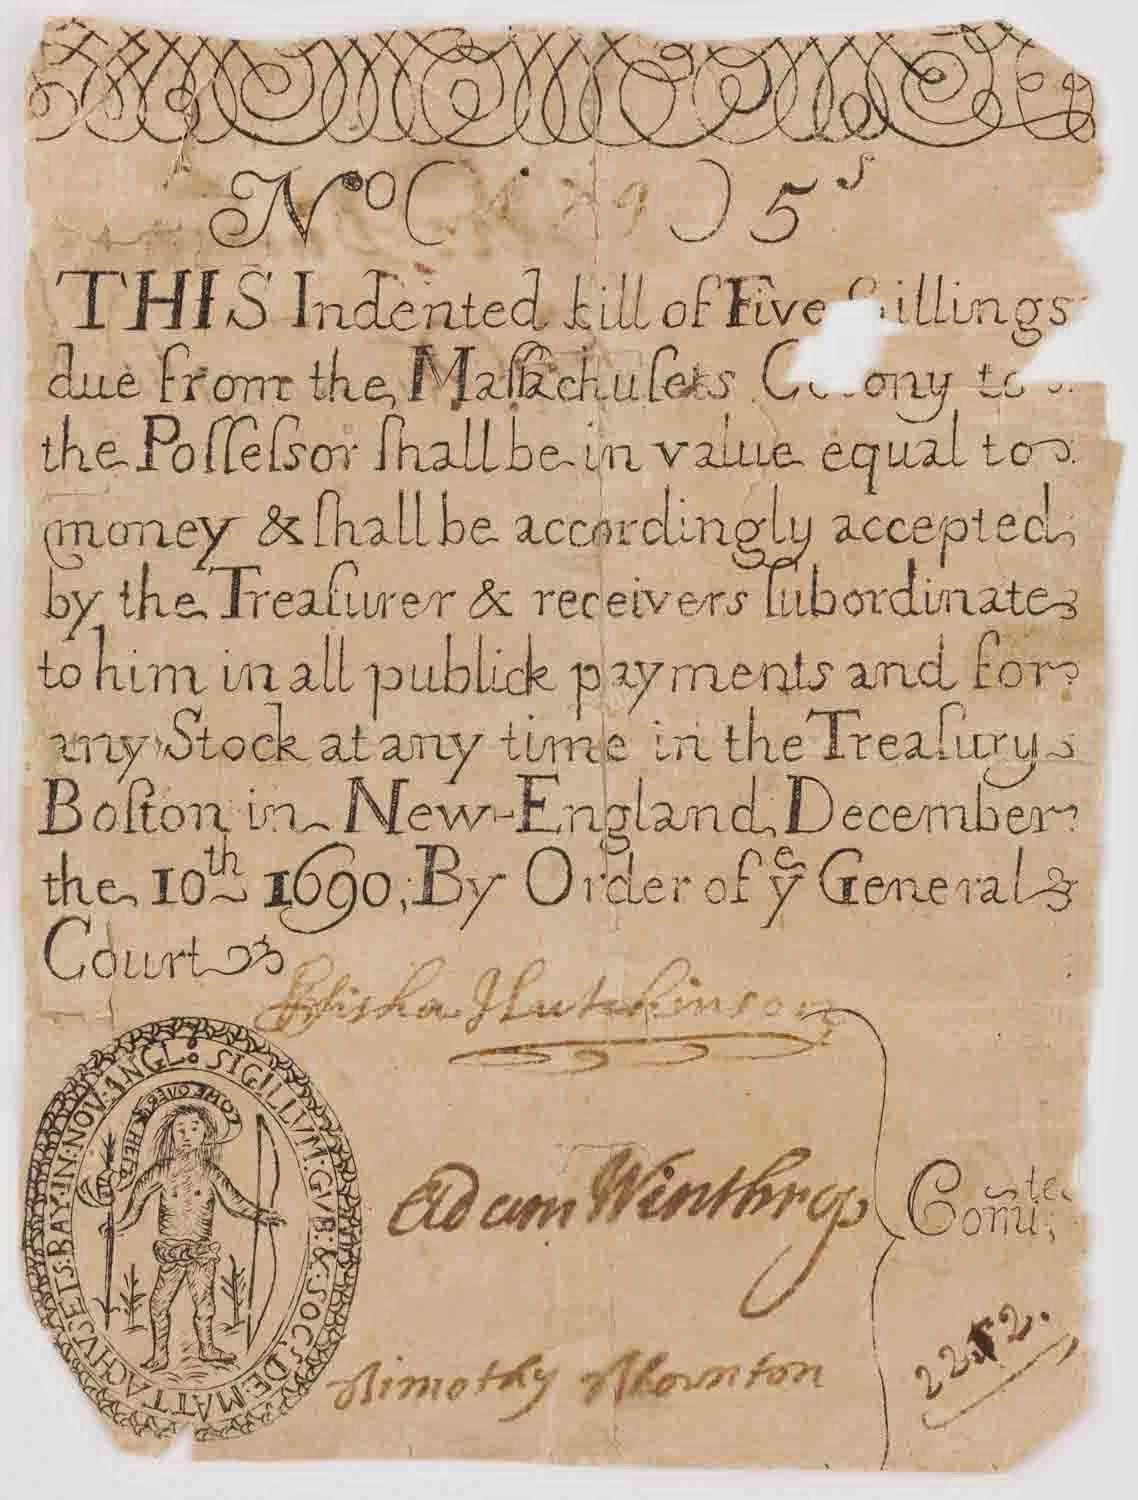 No ( ) 5s
THIS Indented bill of Five illings
due from the Maſſachuſets Colony to
the Poſſeſsor ſhall be in value equal to
money & ſhall be accordingly accepted
by the Treaſurer & receivers ſubordinate
to him in all publick payments and for
any Stock at any time in the Treaſury
Boſton in New-England, December
the 10th 1690; By Order of ye General
Court
Elisha Hutchinson
Adam Winthrop
Comte
Timothy Thornton
SIGILLVM: GVB: & SOC: DE: MATTACHVSETS: BAY: IN: NOV: ANGL:
COME OVER & HELP